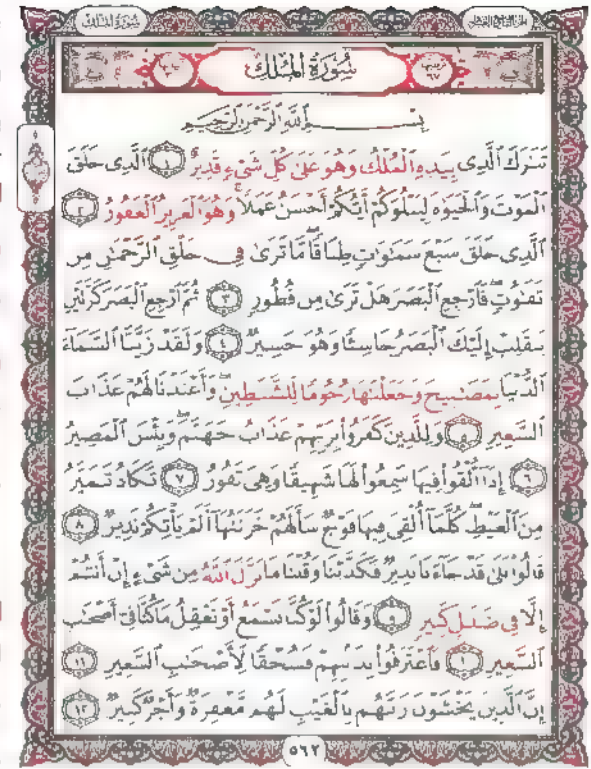 سُورَةُ المُلْكِ
الجزء التاسع والعشرون
سُورَةُ المُلْكِ
ترتيبها ٦٧
بِسْمِ ٱللَّهِ ٱلرَّحْمَٰنِ ٱلرَّحِيمِ
تَبَٰرَكَ ٱلَّذِى بِيَدِهِ ٱلْمُلْكُ وَهُوَ عَلَىٰ كُلِّ شَىْءٍ قَدِيرٌ ١ ٱلَّذِى خَلَقَ
ٱلْمَوْتَ وَٱلْحَيَوٰةَ لِيَبْلُوَكُمْ أَيُّكُمْ أَحْسَنُ عَمَلًا ۚ وَهُوَ ٱلْعَزِيزُ ٱلْغَفُورُ ٢
ٱلَّذِى خَلَقَ سَبْعَ سَمَٰوَٰتٍ طِبَاقًا ۖ مَّا تَرَىٰ فِى خَلْقِ ٱلرَّحْمَٰنِ مِن
تَفَٰوُتٍ ۖ فَٱرْجِعِ ٱلْبَصَرَ هَلْ تَرَىٰ مِن فُطُورٍ ٣ ثُمَّ ٱرْجِعِ ٱلْبَصَرَ كَرَّتَيْنِ
يَنقَلِبْ إِلَيْكَ ٱلْبَصَرُ خَاسِئًا وَهُوَ حَسِيرٌ ٤ وَلَقَدْ زَيَّنَّا ٱلسَّمَآءَ
ٱلدُّنْيَا بِمَصَٰبِيحَ وَجَعَلْنَٰهَا رُجُومًا لِّلشَّيَٰطِينِ ۖ وَأَعْتَدْنَا لَهُمْ عَذَابَ
ٱلسَّعِيرِ ٥ وَلِلَّذِينَ كَفَرُوا۟ بِرَبِّهِمْ عَذَابُ جَهَنَّمَ ۖ وَبِئْسَ ٱلْمَصِيرُ
٦ إِذَآ أُلْقُوا۟ فِيهَا سَمِعُوا۟ لَهَا شَهِيقًا وَهِىَ تَفُورُ ٧ تَكَادُ تَمَيَّزُ
مِنَ ٱلْغَيْظِ ۖ كُلَّمَآ أُلْقِىَ فِيهَا فَوْجٌ سَأَلَهُمْ خَزَنَتُهَآ أَلَمْ يَأْتِكُمْ نَذِيرٌ ٨
قَالُوا۟ بَلَىٰ قَدْ جَآءَنَا نَذِيرٌ فَكَذَّبْنَا وَقُلْنَا مَا نَزَّلَ ٱللَّهُ مِن شَىْءٍ إِنْ أَنتُمْ
إِلَّا فِى ضَلَٰلٍ كَبِيرٍ ٩ وَقَالُوا۟ لَوْ كُنَّا نَسْمَعُ أَوْ نَعْقِلُ مَا كُنَّا فِىٓ أَصْحَٰبِ
ٱلسَّعِيرِ ١٠ فَٱعْتَرَفُوا۟ بِذَنۢبِهِمْ فَسُحْقًا لِّأَصْحَٰبِ ٱلسَّعِيرِ ١١
إِنَّ ٱلَّذِينَ يَخْشَوْنَ رَبَّهُم بِٱلْغَيْبِ لَهُم مَّغْفِرَةٌ وَأَجْرٌ كَبِيرٌ ١٢
٥٦٢